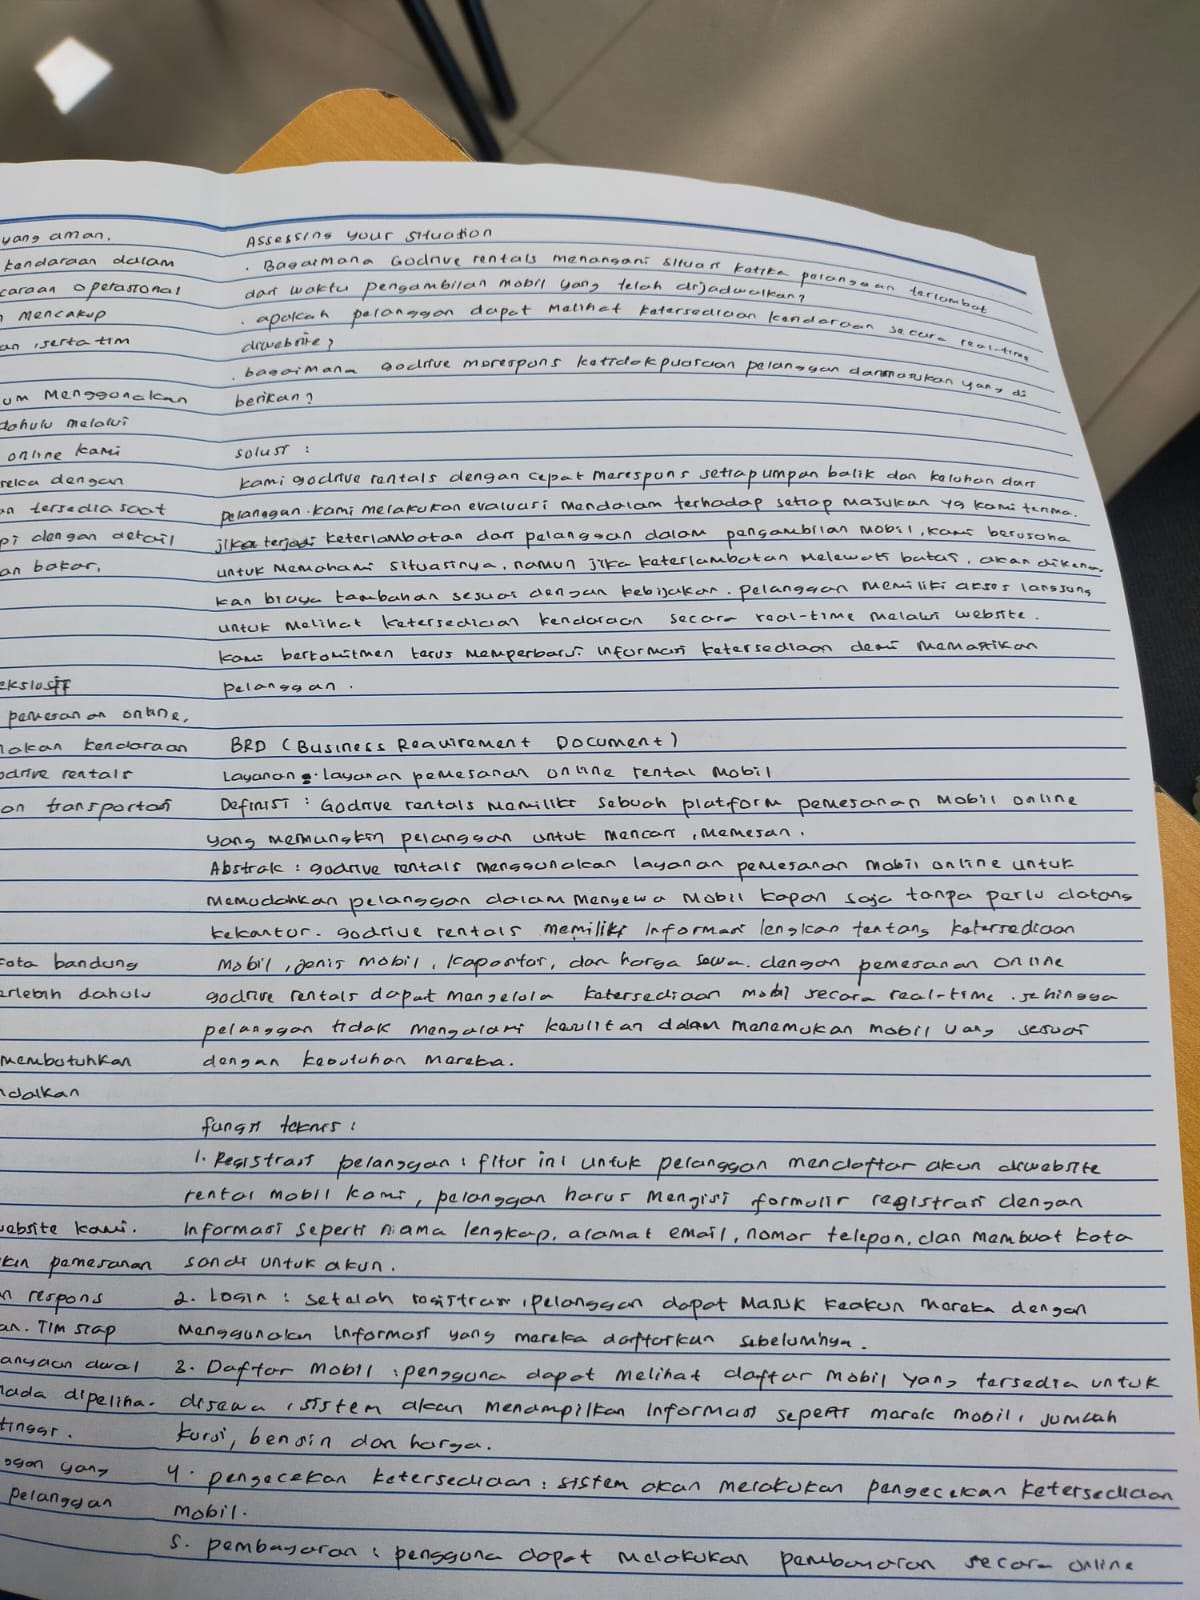 yang aman.
kendaraan dalam
caraan operasional
mencakup
an, serta tim
um Menggunakan
dahulu melalui
online kami
reka dengan
an tersedia saat
pi dengan detail
an bakar,
ekslosif
pemesanan online,
nakan kendaraan
odrive rentals
on transportasi
kota bandung
erlebih dahulu
membutuhkan
ndalkan
website kami.
kan pemesanan
n respons
an. Tim siap
anyaan awal
nada dipeliha-
tinggi.
ggan yang
pelanggan
Assessing your situation
. Bagaimana Godrive rentals menangani situasi ketika pelanggan terlambat
dari waktu pengambilan mobil yang telah dijadwalkan?
. apakah pelanggan dapat melihat ketersediaan kendaraan secara real-time
diwebsite?
. bagaimana godrive merespons ketidakpuasaan pelanggan dan masukan yang di
berikan?
solusi :
kami godrive rentals dengan cepat merespons setiap umpan balik dan keluhan dari
pelanggan. kami melakukan evaluasi mendalam terhadap setiap masukan yg kami terima.
jika terjadi keterlambatan dari pelanggan dalam pengambilan mobil, kami berusaha
untuk memahami situasinya, namun jika keterlambatan melewati batas, akan dikena-
kan biaya tambahan sesuai dengan kebijakan. pelanggan memiliki akses langsung
untuk melihat ketersediaan kendaraan secara real-time melalui website.
kami berkomitmen terus memperbarui informasi ketersediaan demi memastikan
pelanggan.
BRD (Business Requirement Document)
Layanan : layanan pemesanan online rental mobil
Definisi : Godrive rentals memiliki sebuah platform pemesanan mobil online
yang memungkin pelanggan untuk mencari, memesan.
Abstrak : godrive rentals menggunakan layanan pemesanan mobil online untuk
memudahkan pelanggan dalam menyewa mobil kapan saja tanpa perlu datang
kekantor. godrive rentals memiliki informasi lengkap tentang ketersediaan
mobil, jenis mobil, kapasitas, dan harga sewa. dengan pemesanan online
godrive rentals dapat mengelola ketersediaan mobil secara real-time. sehingga
pelanggan tidak mengalami kesulitan dalam menemukan mobil yang sesuai
dengan kebutuhan mereka.
fungsi teknis :
1. Registrasi pelanggan : fitur ini untuk pelanggan mendaftar akun diwebsite
rental mobil kami, pelanggan harus mengisi formulir registrasi dengan
informasi seperti nama lengkap, alamat email, nomor telepon, dan membuat kata
sandi untuk akun.
2. Login : setelah registrasi, pelanggan dapat masuk keakun mereka dengan
menggunakan informasi yang mereka daftarkan sebelumnya.
3. Daftar mobil : pengguna dapat melihat daftar mobil yang tersedia untuk
disewa, sistem akan menampilkan informasi seperti merek mobil, jumlah
kursi, bensin dan harga.
4. pengecekan ketersediaan : sistem akan melakukan pengecekan ketersediaan
mobil.
5. pembayaran : pengguna dapat melakukan pembayaran secara online